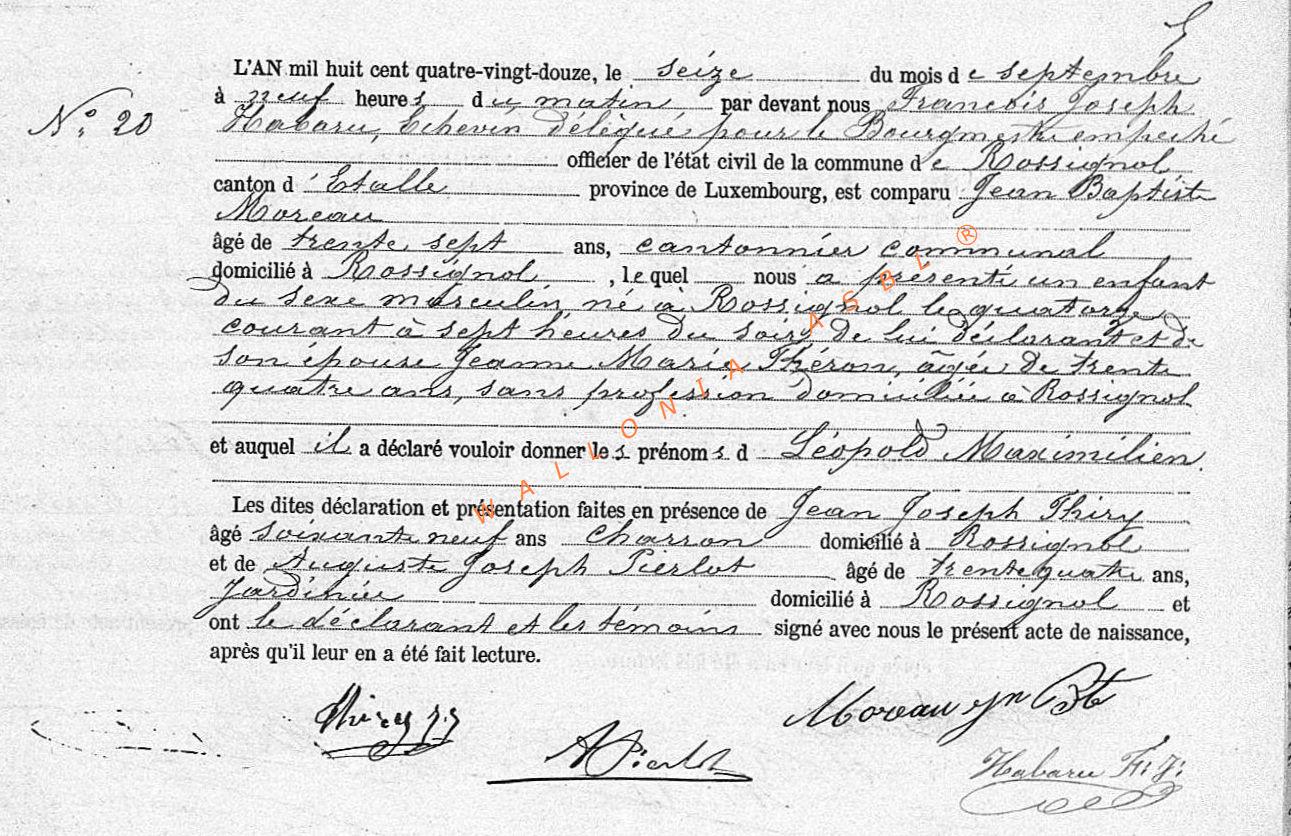 L'AN mil huit cent quatre-vingt-douze, le seize du mois de septembre
N° 20
à neuf heures du matin par devant nous François Joseph
Habaru, Echevin délégué pour le Bourgmestre empeché
officier de l'état civil de la commune de Rossignol
canton d'Etalle province de Luxembourg, est comparu Jean Baptiste
Moreau
âgé de trente sept ans, cantonnier communal
domicilié à Rossignol, lequel nous a présenté un enfant
du sexe masculin, né à Rossignol le quatorze
courant à sept heures du soir, de lui déclarant et de
son épouse Jeanne Marie Théron, âgée de trente
quatre ans, sans profession domiciliée à Rossignol
et auquel il a déclaré vouloir donner les prénoms d Léopold Maximilien.
Les dites déclaration et présentation faites en présence de Jean Joseph Thiry
âgé soixante neuf ans Charron domicilié à Rossignol
et de Auguste Joseph Pierlot âgé de trente quatre ans,
Jardinier domicilié à Rossignol et
ont le déclarant et les témoins signé avec nous le présent acte de naissance,
après qu'il leur en a été fait lecture.
Thiry J.J
Moreau Jn Bte
A Pierlot
Habaru F. J.
WALLONIA ASBL ®